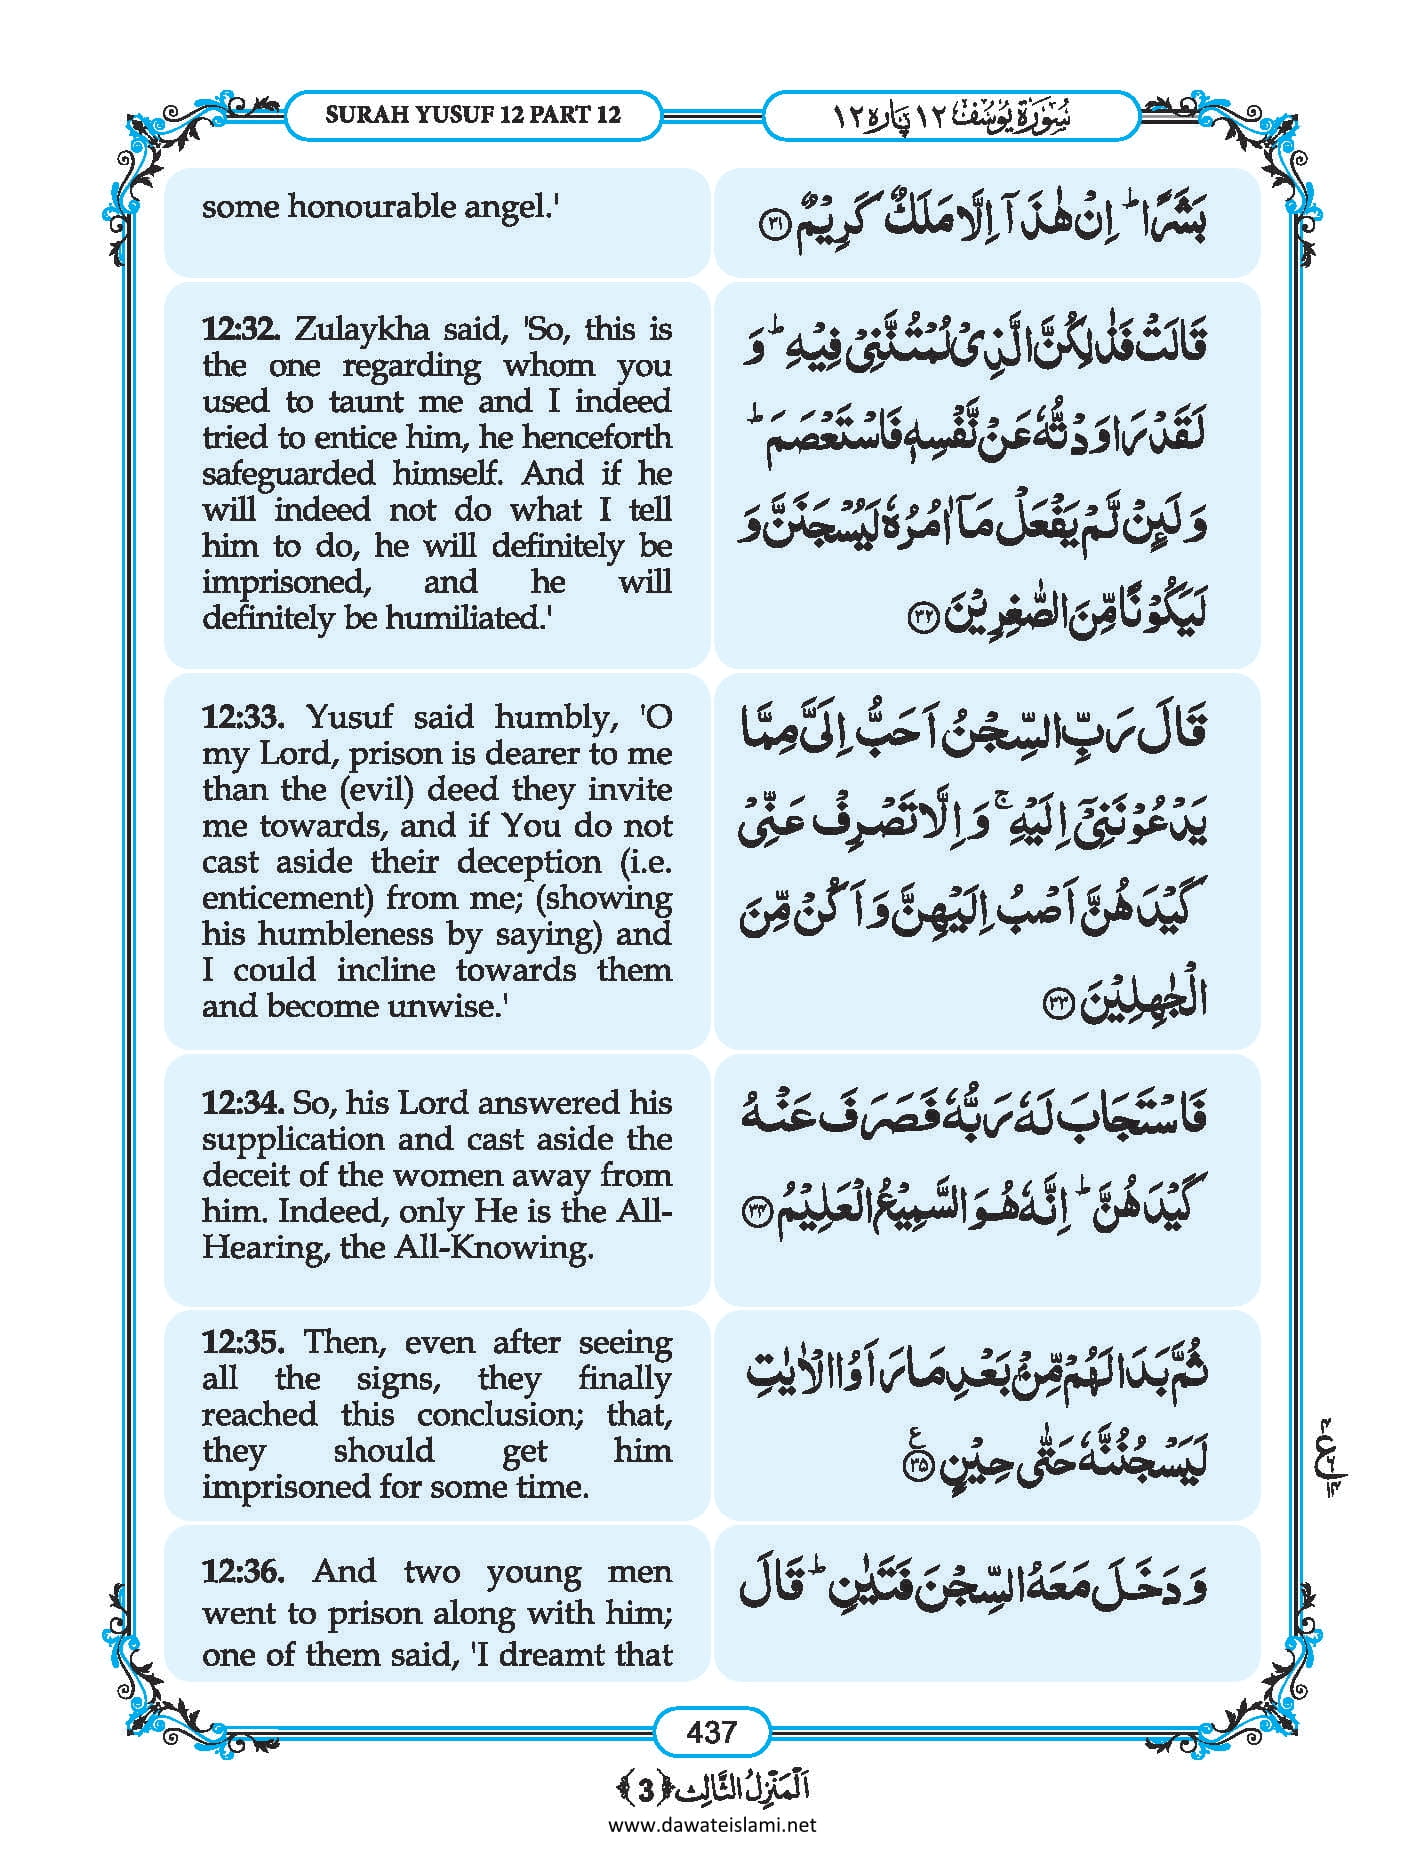 SURAH YUSUF 12 PART 12
سُوْرَۃ یُوْسُف ۱۲ پَارہ ۱۲
some honourable angel.'
بَشَرًا ؕ اِنْ هٰذَاۤ اِلَّا مَلَكٌ كَرِیْمٌ ﴿۳۱﴾
12:32. Zulaykha said, 'So, this is
the one regarding whom you
used to taunt me and I indeed
tried to entice him, he henceforth
safeguarded himself. And if he
will indeed not do what I tell
him to do, he will definitely be
imprisoned, and he will
definitely be humiliated.'
قَالَتْ فَذٰلِكُنَّ الَّذِیْ لُمْتُنَّنِیْ فِیْهِ ؕ وَ
لَقَدْ رَاوَدْتُّهٗ عَنْ نَّفْسِهٖ فَاسْتَعْصَمَ ؕ
وَ لَىِٕنْ لَّمْ یَفْعَلْ مَاۤ اٰمُرُهٗ لَیُسْجَنَنَّ وَ
لَیَكُوْنًا مِّنَ الصّٰغِرِیْنَ ﴿۳۲﴾
12:33. Yusuf said humbly, 'O
my Lord, prison is dearer to me
than the (evil) deed they invite
me towards, and if You do not
cast aside their deception (i.e.
enticement) from me; (showing
his humbleness by saying) and
I could incline towards them
and become unwise.'
قَالَ رَبِّ السِّجْنُ اَحَبُّ اِلَیَّ مِمَّا
یَدْعُوْنَنِیْۤ اِلَیْهِ ۚ وَ اِلَّا تَصْرِفْ عَنِّیْ
كَیْدَهُنَّ اَصْبُ اِلَیْهِنَّ وَ اَكُنْ مِّنَ
الْجٰهِلِیْنَ ﴿۳۳﴾
12:34. So, his Lord answered his
supplication and cast aside the
deceit of the women away from
him. Indeed, only He is the All-
Hearing, the All-Knowing.
فَاسْتَجَابَ لَهٗ رَبُّهٗ فَصَرَفَ عَنْهُ
كَیْدَهُنَّ ؕ اِنَّهٗ هُوَ السَّمِیْعُ الْعَلِیْمُ ﴿۳۴﴾
12:35. Then, even after seeing
all the signs, they finally
reached this conclusion; that,
they should get him
imprisoned for some time.
ثُمَّ بَدَا لَهُمْ مِّنْۢ بَعْدِ مَا رَاَوُا الْاٰیٰتِ
لَیَسْجُنُنَّهٗ حَتّٰى حِیْنٍ ﴿۳۵﴾ ع
12:36. And two young men
went to prison along with him;
one of them said, 'I dreamt that
وَ دَخَلَ مَعَهُ السِّجْنَ فَتَیٰنِ ؕ قَالَ
437
اَلْمَنْزِلُ الثَّالِث ﴿3﴾
www.dawateislami.net